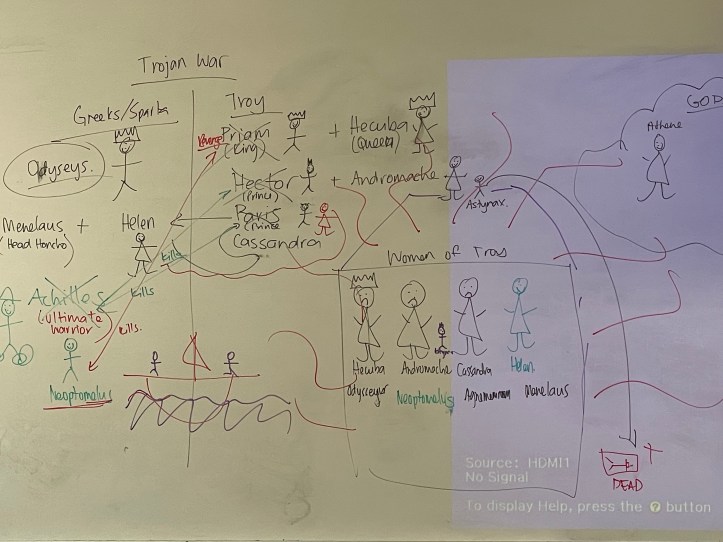 Trojan War
Greeks/Sparta
Odyseys.
Menelaus + Helen
(Head Honcho)
Achilles
(ultimate
warrior)
Neoptomalus
kills
kills
kills.
Troy
Revenge
Priam + Hecuba
(King) (Queen)
Hector + Andromache
(Prince)
Paris
(Prince
Cassandra
Astynax.
GOD
Athene
Women of Troy
Hecuba Andromache Cassandra Helen
Neoptomalus Menelaus
DEAD
Source: HDMI1
No Signal
To display Help, press the ? button